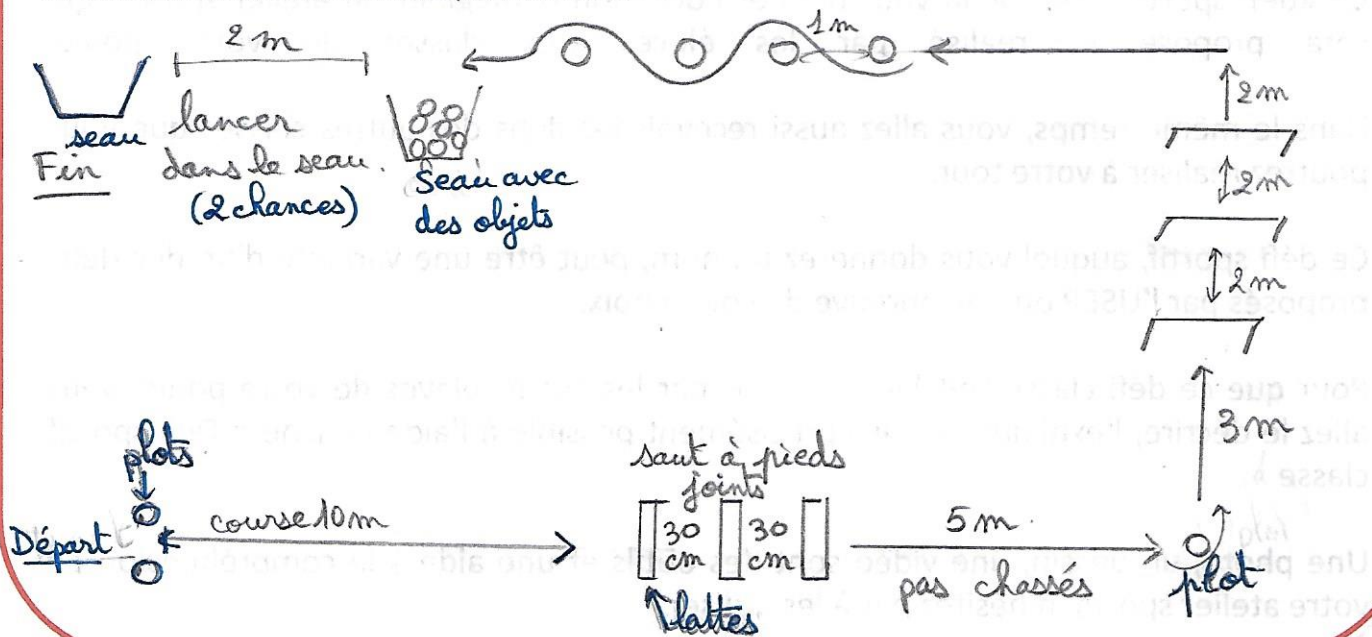 2m
1m
seau
Fin
lancer
dans le seau.
(2 chances)
Seau avec
des objets
2m
2m
2m
3m
plots
Départ
course 10m
saut à pieds
joints
30 cm
30 cm
lattes
5m
pas chassés
plot